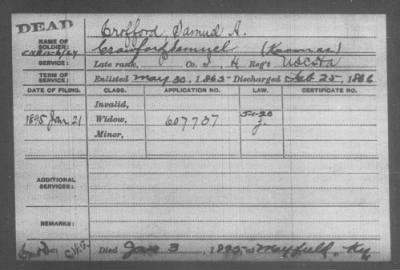 DEAD
Crofford, Samuel A.
NAME OF SOLDIER:
Crawford, Samuel (Known as)
SERVICE:
Late rank, Co. I, Reg't
TERM OF SERVICE:
Enlisted May 30, 1865 Discharged Feb 25, 1866
DATE OF FILING. CLASS. APPLICATION NO. LAW. CERTIFICATE NO.
Invalid,
1895 Jan. 21 Widow, 607707
Minor,
ADDITIONAL SERVICES:
REMARKS:
Died Jan 3, 1895 at Mayfield, Ky